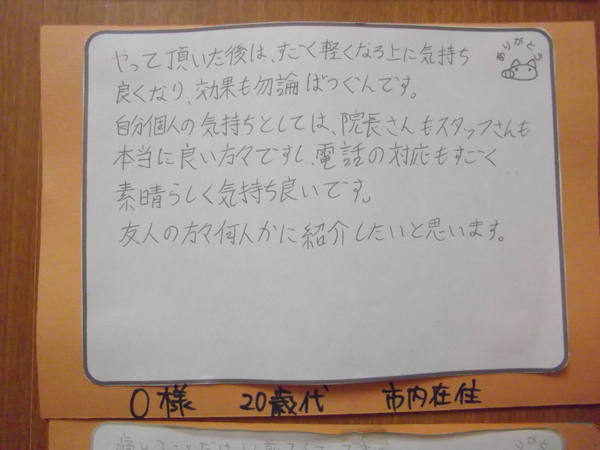 ありがとう
やって頂いた後は、すごく軽くなる上に気持ち
良くなり、効果も勿論ばつぐんです。
自分個人の気持ちとしては、院長さんもスタッフさんも
本当に良い方々ですし、電話の対応もすごく
素晴らしく気持ち良いです。
友人の方々何人かに紹介したいと思います。
O様 20歳代 市内在住